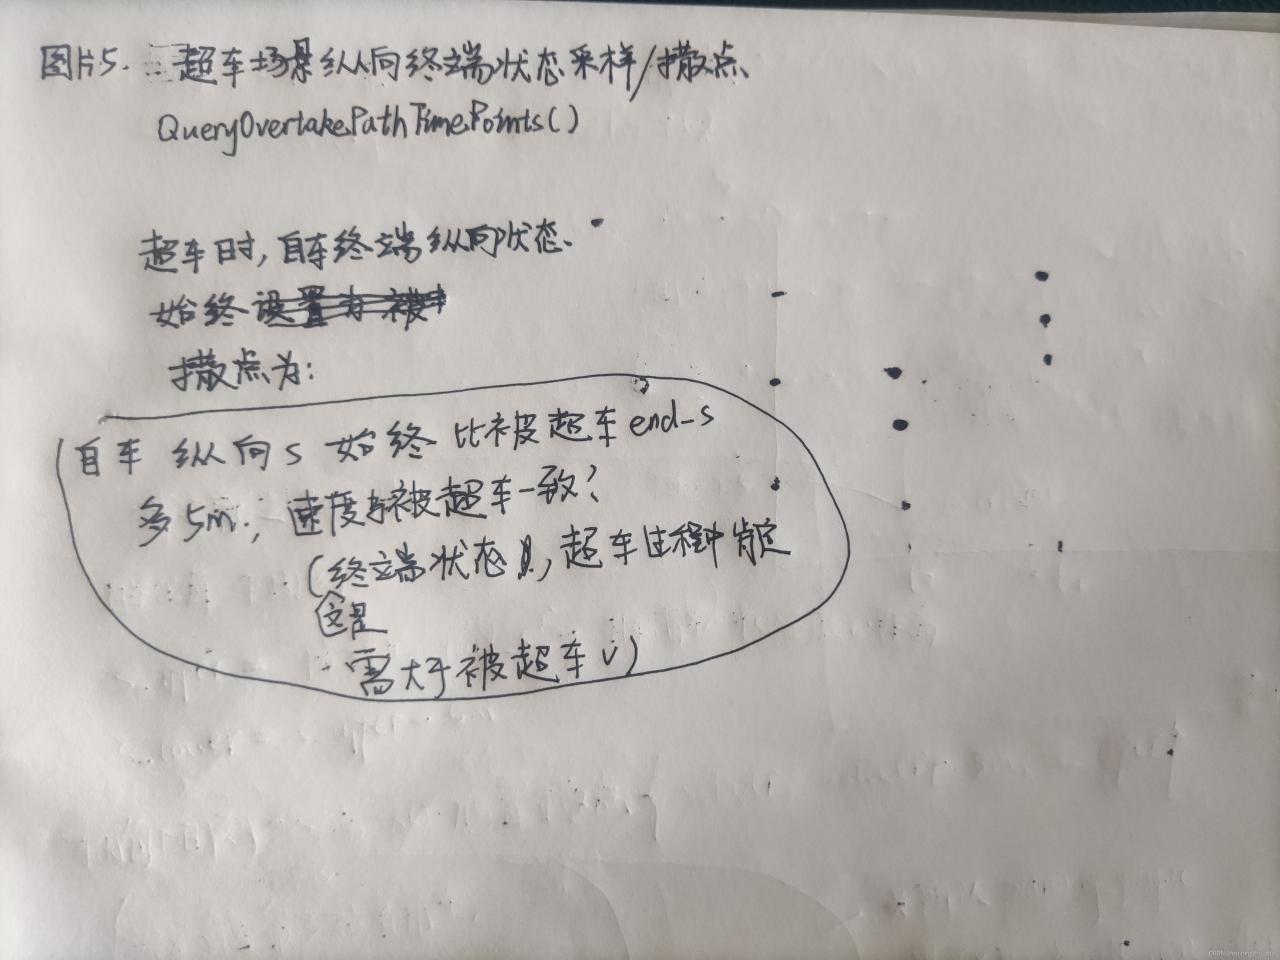 图片5. 超车场景纵向终端状态采样/撒点
QueryOvertakePathTimePoints()
超车时,自车终端纵向状态.
始终设置为被
撒点为:
自车 纵向s 始终 比被超车 end-s
多5m, 速度与被超车一致?
(终端状态, 超车过程中肯定
这是
需大于被超车 v)